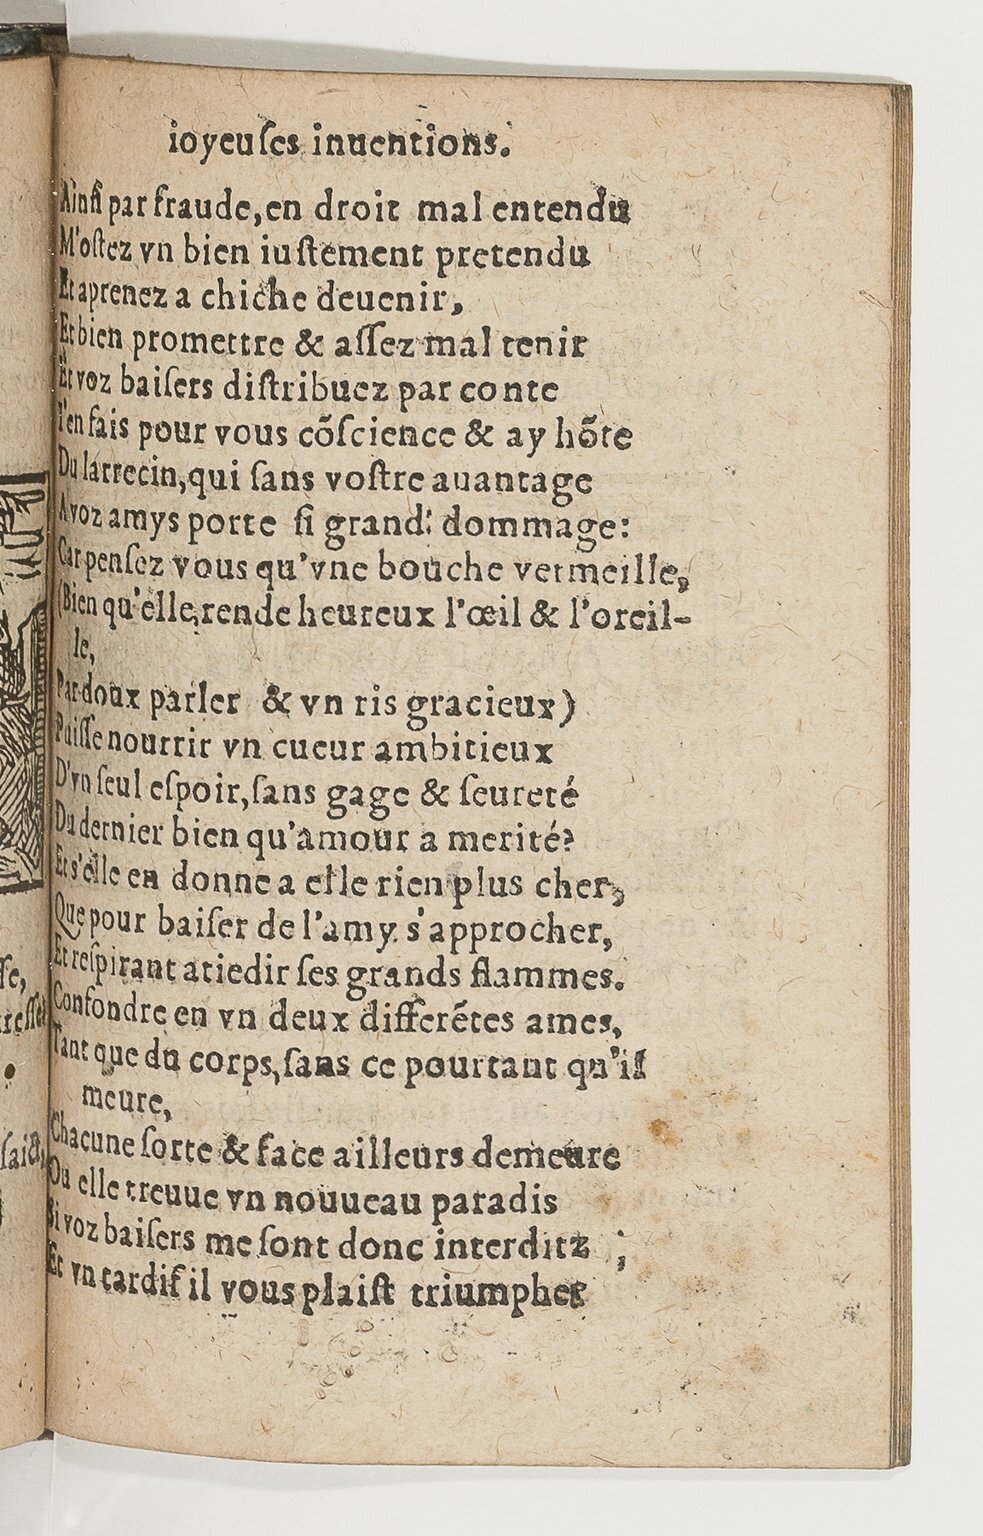 ioyeuſes inuentions.
Ainſi par fraude, en droit mal entendu
M'oſtez vn bien iuſtement pretendu
Et aprenez a chiche deuenir,
Et bien promettre & aſſez mal tenir
Et voz baiſers diſtribuez par conte
I'en fais pour vous cõſcience & ay hõte
Du larrecin, qui ſans voſtre auantage
A voz amys porte ſi grand: dommage:
Car penſez vous qu'vne bouche vermeille,
(Bien qu'elle, rende heureux l'œil & l'oreil-
le,
Par doux parler & vn ris gracieux)
Puiſſe nourrir vn cueur ambitieux
D'vn ſeul eſpoir, ſans gage & ſeureté
Du dernier bien qu'amour a merité?
Et s'elle en donne a elle rien plus cher,
Que pour baiſer de l'amy s'approcher,
Et reſpirant atiedir ſes grands flammes.
Confondre en vn deux differẽtes ames,
Tant que du corps, ſans ce pourtant qu'il
meure,
Chacune ſorte & face ailleurs demeure
Ou elle treuue vn nouueau paradis
Si voz baiſers me ſont donc interditz ;
Et vn tardif il vous plaiſt triumpher
ſe,
ſaict,